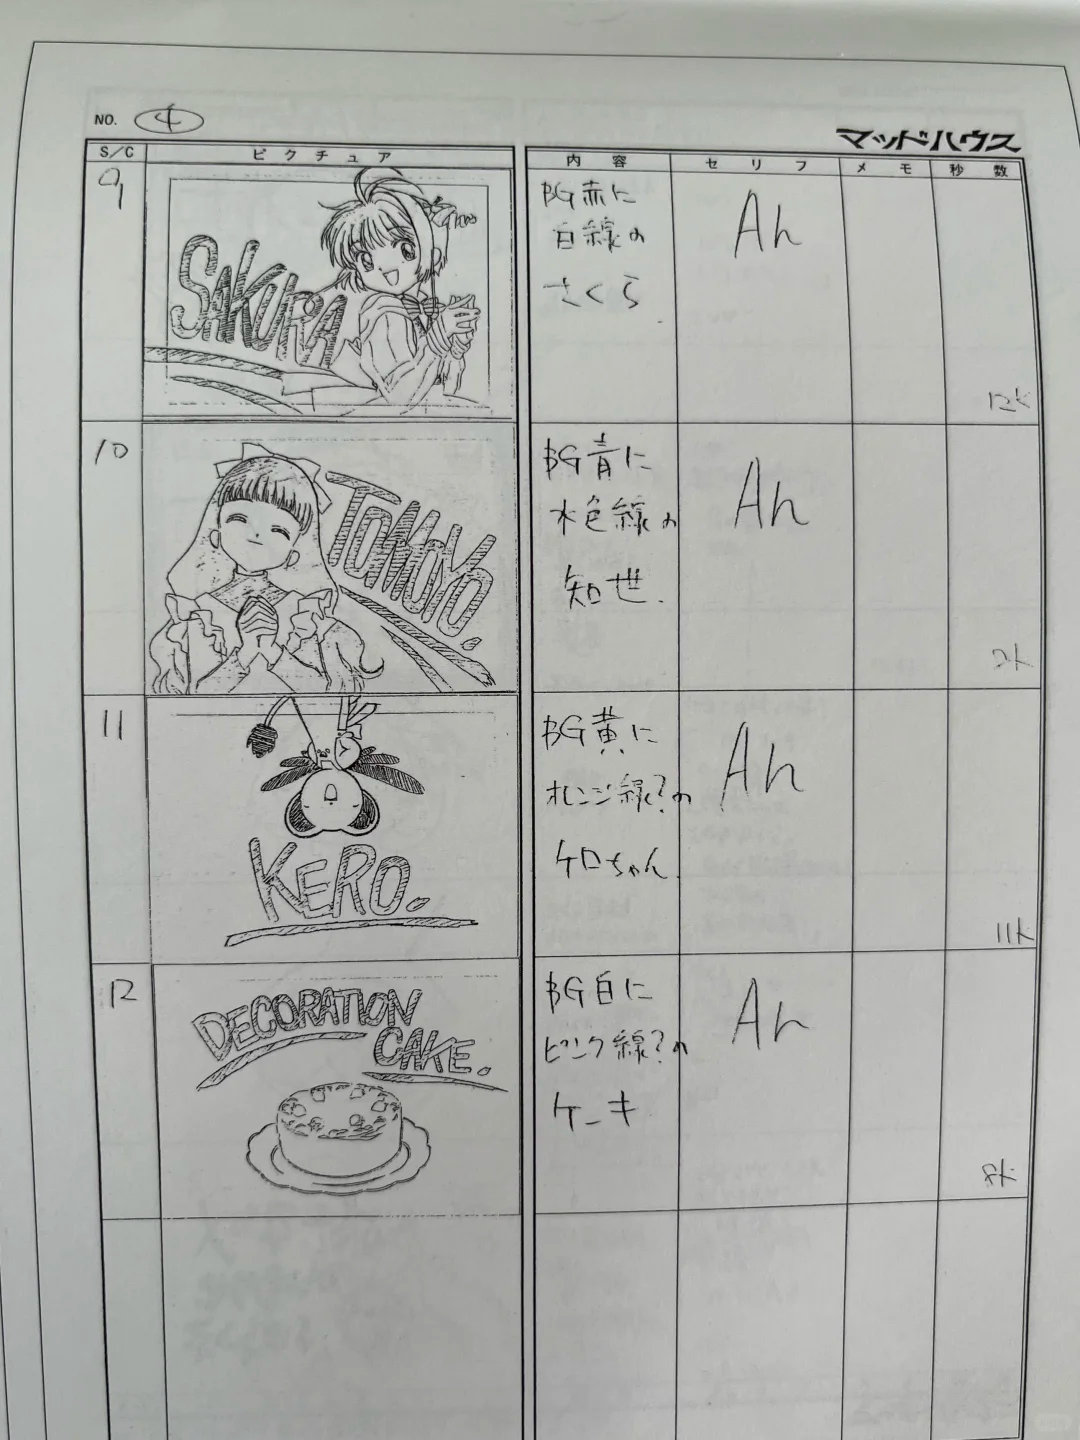 NO. 4
マッドハウス
S/C ピクチュア 内容 セリフ メモ 秒数
9
SAKURA
BG赤に
白線の
さくら
Ah
12K
10
TOMOYO.
BG青に
水色線の
知世.
Ah
11
KERO.
BG黄に
オレンジ線?の
ケロちゃん
Ah
11K
12
DECORATION
CAKE.
BG白に
ピンク線?の
ケーキ
Ah
8K